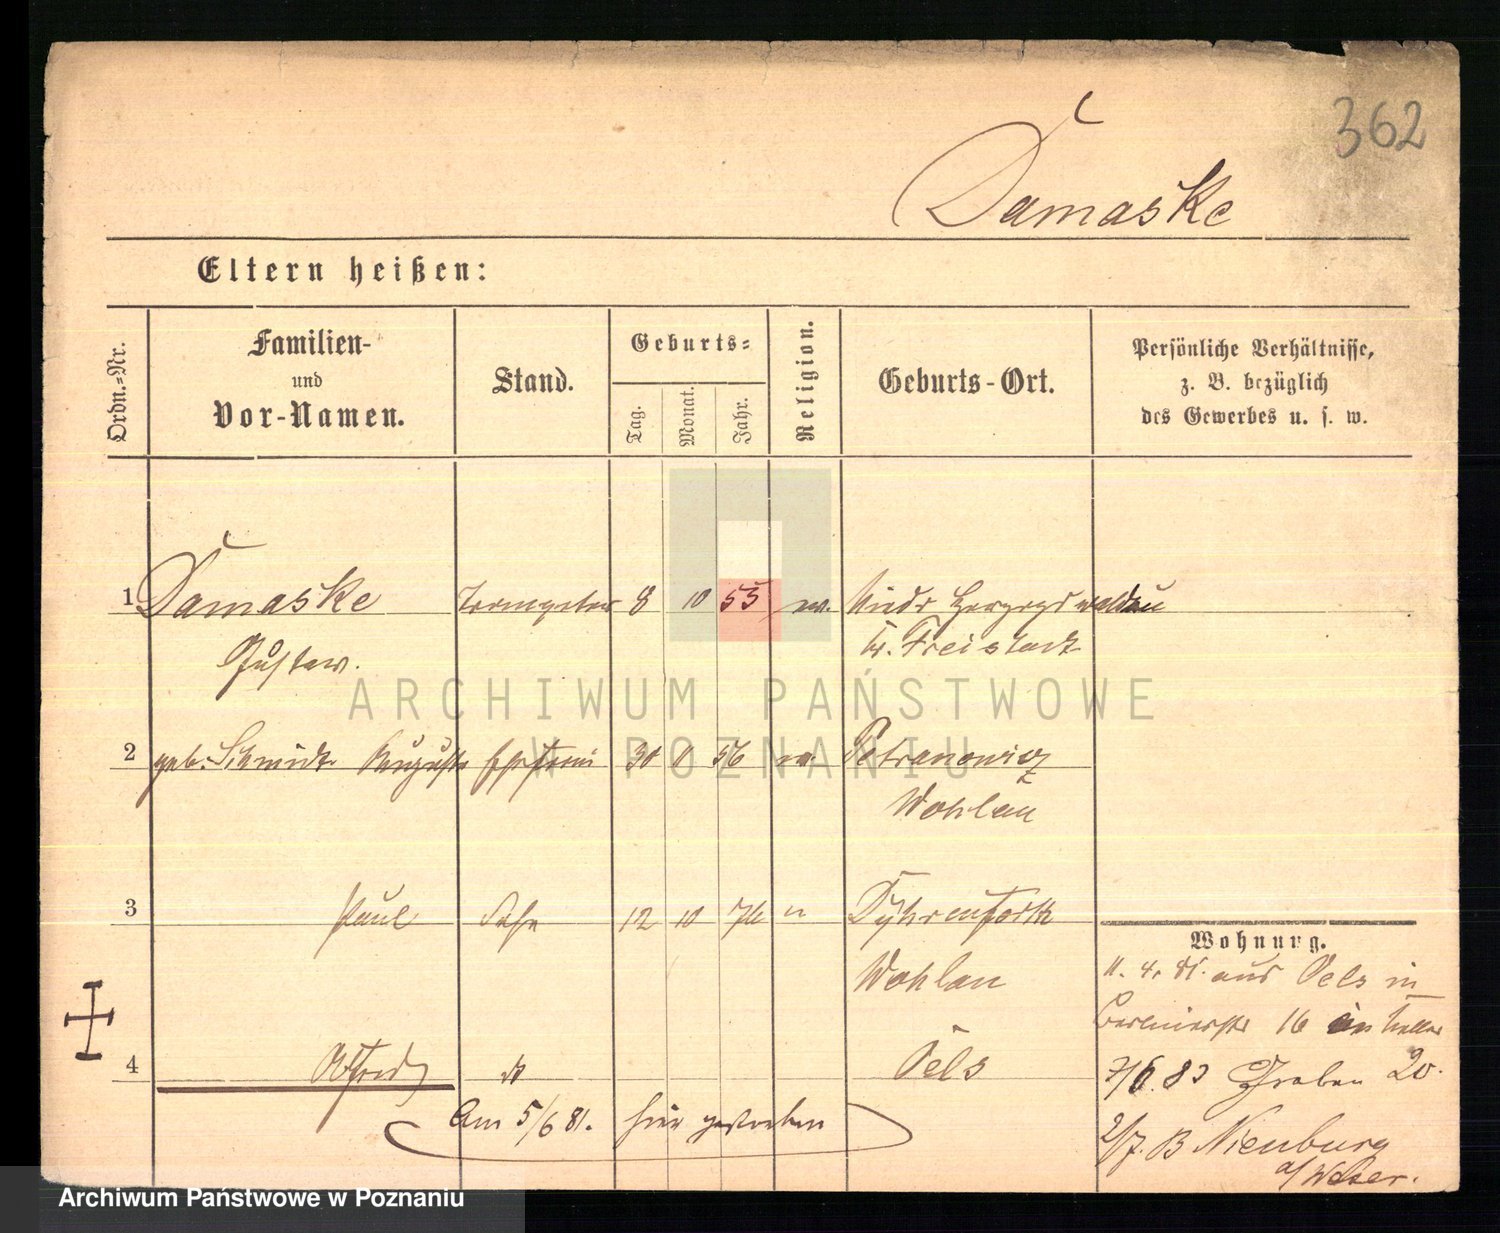 362
Damaske
Eltern heißen:
Ordn.=Nr.
Familien-
und
Vor-Namen.
Stand.
Geburts=
Tag.
Monat.
Jahr.
Religion.
Geburts-Ort.
Persönliche Verhältnisse,
z. B. bezüglich
des Gewerbes u. s. w.
1 Damaske 8 10 55 ev. Nieder Herzogswaldau
Gustav. Kr. Freistadt
ARCHIWUM PAŃSTWOWE
W POZNANIU
2 geb. Schmidt Auguste Ehefrau 30 56 ev.
Wohlau
3 Paul Sohn 12 10 Dyhrenfurth
Wohlau
Wohnung.
11. 4. 81. aus Oels in
16 im Keller
4 Alfred Oels
7/6. 83 Graben 20.
Am 5/6 81. hier gestorben
2/7. B Nienburg
a/Weser.
Archiwum Państwowe w Poznaniu